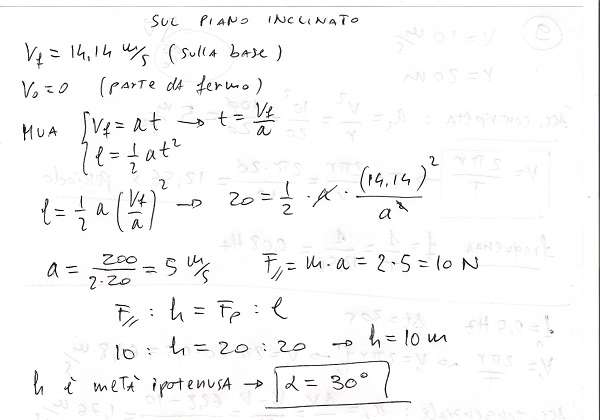 SUL PIANO INCLINATO
Vf = 14,14 m/s (sulla base)
V0 = 0 (parte da fermo)
MUA { Vf = at → t = Vf/a
{ l = 1/2 at²
l = 1/2 a (Vf/a)² → 20 = 1/2 · a · (14,14)²/a²
a = 200/2·20 = 5 m/s F// = m·a = 2·5 = 10 N
F// : h = Fp : l
10 : h = 20 : 20 → h = 10 m
h è metà ipotenusa → α = 30°